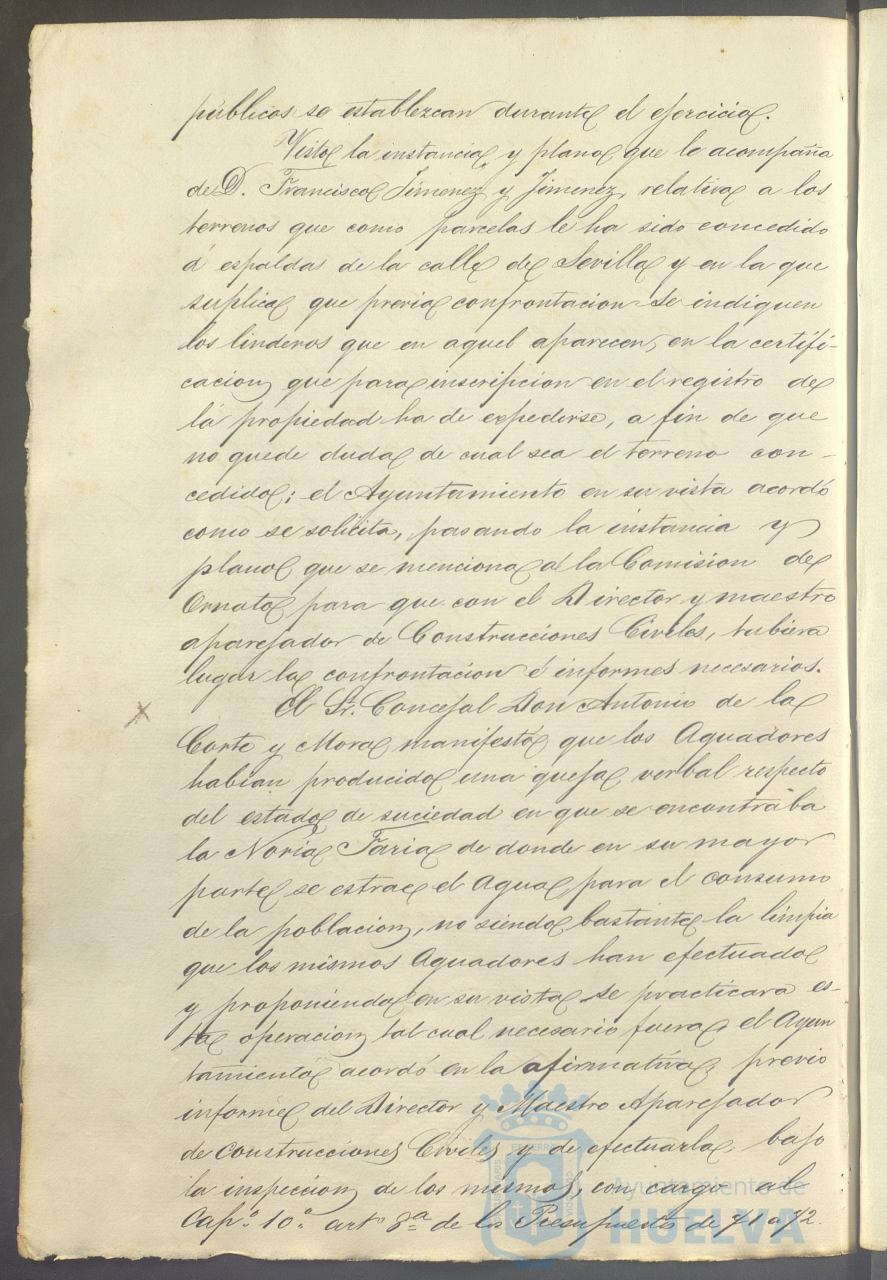 públicos se establezcan durante el ejercicio.
Vista la instancia y plano que le acompaña
de D. Francisco Jimenez y Jimenez, relativa a los
terrenos que como parcelas le ha sido concedido
á espaldas de la calle de Sevilla y en la que
suplica que previa confrontacion se indiquen
los linderos que en aquel aparecen, en la certifi-
cacion que para inscripcion en el registro de
la propiedad ha de expedirse, a fin de que
no quede duda de cual sea el terreno con-
cedido; el Ayuntamiento en su vista acordó
como se solicita, pasando la instancia y
plano que se menciona á la Comision de
Ornato para que con el Director y maestro
aparejador de Construcciones Civiles, tubiera
lugar la confrontacion é informes necesarios.
El Sr. Concejal Don Antonio de la
Corte y Mora manifestó que los Aguadores
habian producido una queja verbal respecto
del estado de suciedad en que se encontraba
la Noria Faria de donde en su mayor
parte se estrae el Agua para el consumo
de la poblacion, no siendo bastante la limpia
que los mismos Aguadores han efectuado
y proponiendo en su vista se practicara es-
ta operacion tal cual necesario fuera, el Ayun
tamiento acordó en la afirmativa, previo
informe del Director y Maestro Aparejador
de construcciones Civiles y de efectuarla, bajo
la inspeccion de los mismos, con cargo al
Capº. 10.º artº 8.ª de los Presupuesto de 71 a 72.
Ayuntamiento de
HUELVA